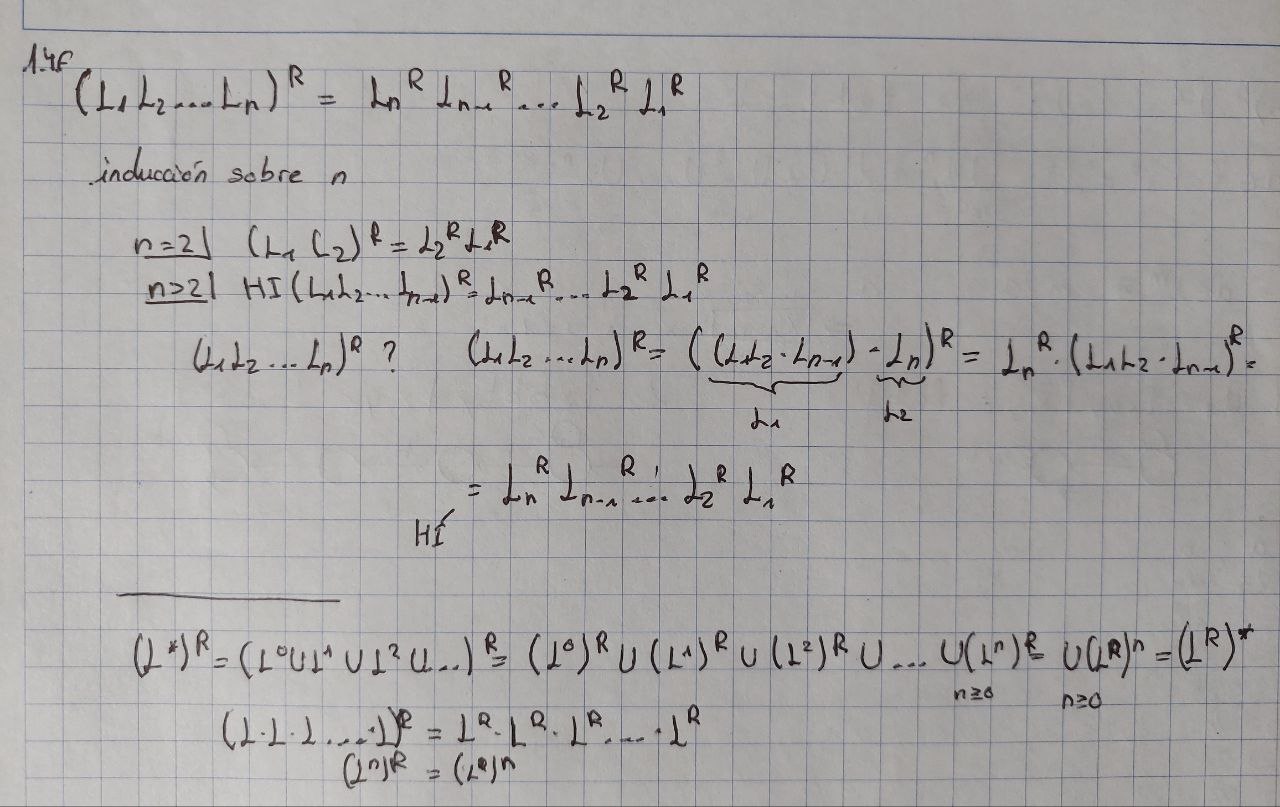 1.4f
(L₁L₂...Lₙ)ᴿ = Lₙᴿ Lₙ₋₁ᴿ ... L₂ᴿ L₁ᴿ
inducción sobre n
n=2| (L₁L₂)ᴿ = L₂ᴿL₁ᴿ
n>2| HI (L₁L₂...Lₙ₋₁)ᴿ = Lₙ₋₁ᴿ ... L₂ᴿ L₁ᴿ
(L₁L₂...Lₙ)ᴿ ? (L₁L₂...Lₙ)ᴿ = ((L₁L₂·Lₙ₋₁)·Lₙ)ᴿ = Lₙᴿ·(L₁L₂·Lₙ₋₁)ᴿ =
L₁ L₂
= Lₙᴿ Lₙ₋₁ᴿ ... L₂ᴿ L₁ᴿ
HI
(L*)ᴿ = (L⁰∪L¹∪L²∪...)ᴿ = (L⁰)ᴿ ∪ (L¹)ᴿ ∪ (L²)ᴿ ∪ ... ∪(Lⁿ)ᴿ = ∪(Lᴿ)ⁿ = (Lᴿ)*
n≥0 n≥0
(L·L·L·...·L)ᴿ = Lᴿ·Lᴿ·Lᴿ·...·Lᴿ
(Lⁿ)ᴿ = (Lᴿ)ⁿ